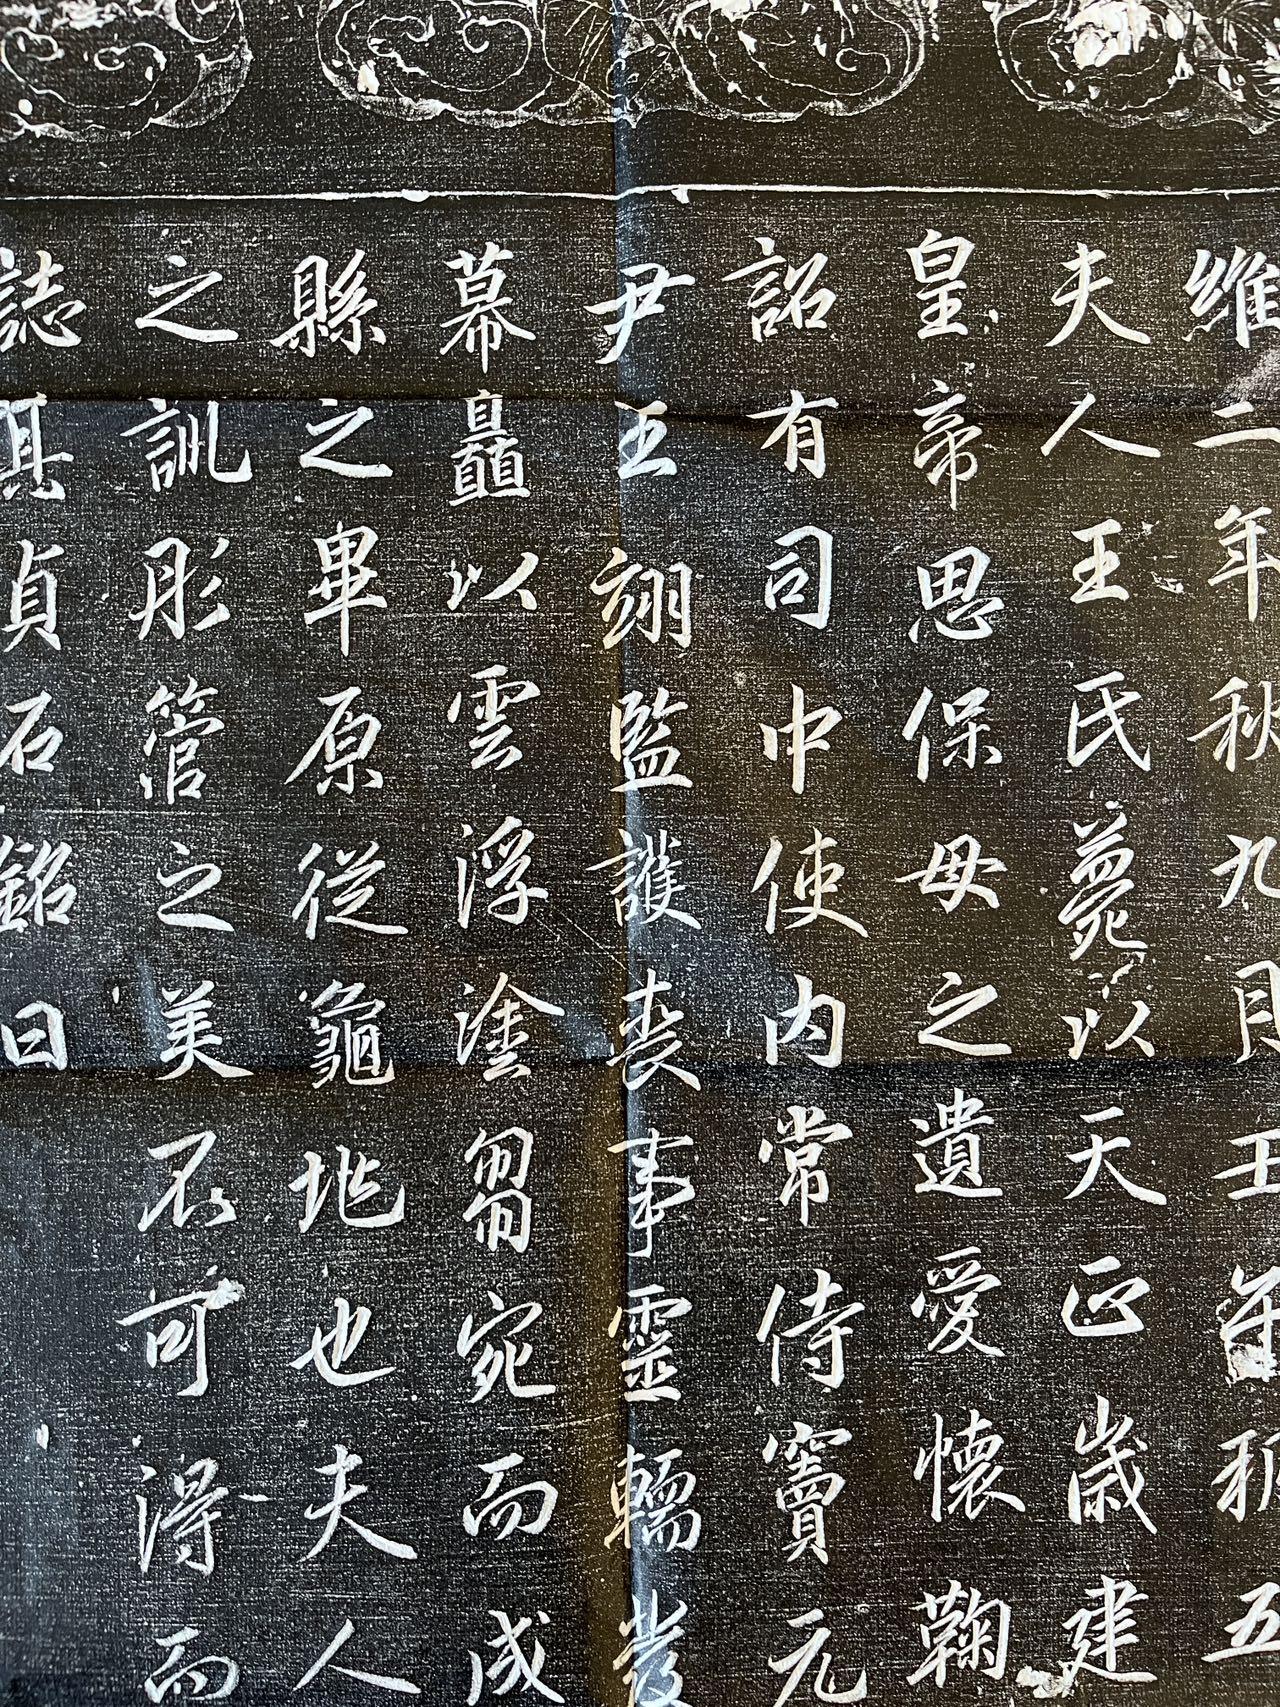 維二年秋九月王
夫人王氏薨以天正歲建
皇帝思保母之遺愛懷鞠
詔有司中使內常侍竇元
尹王翊監護喪事靈輀發
幕矗以雲浮塗芻宛而成
縣之畢原從龜兆也夫人
之訓彤管之美不可得而
誌其貞石銘曰